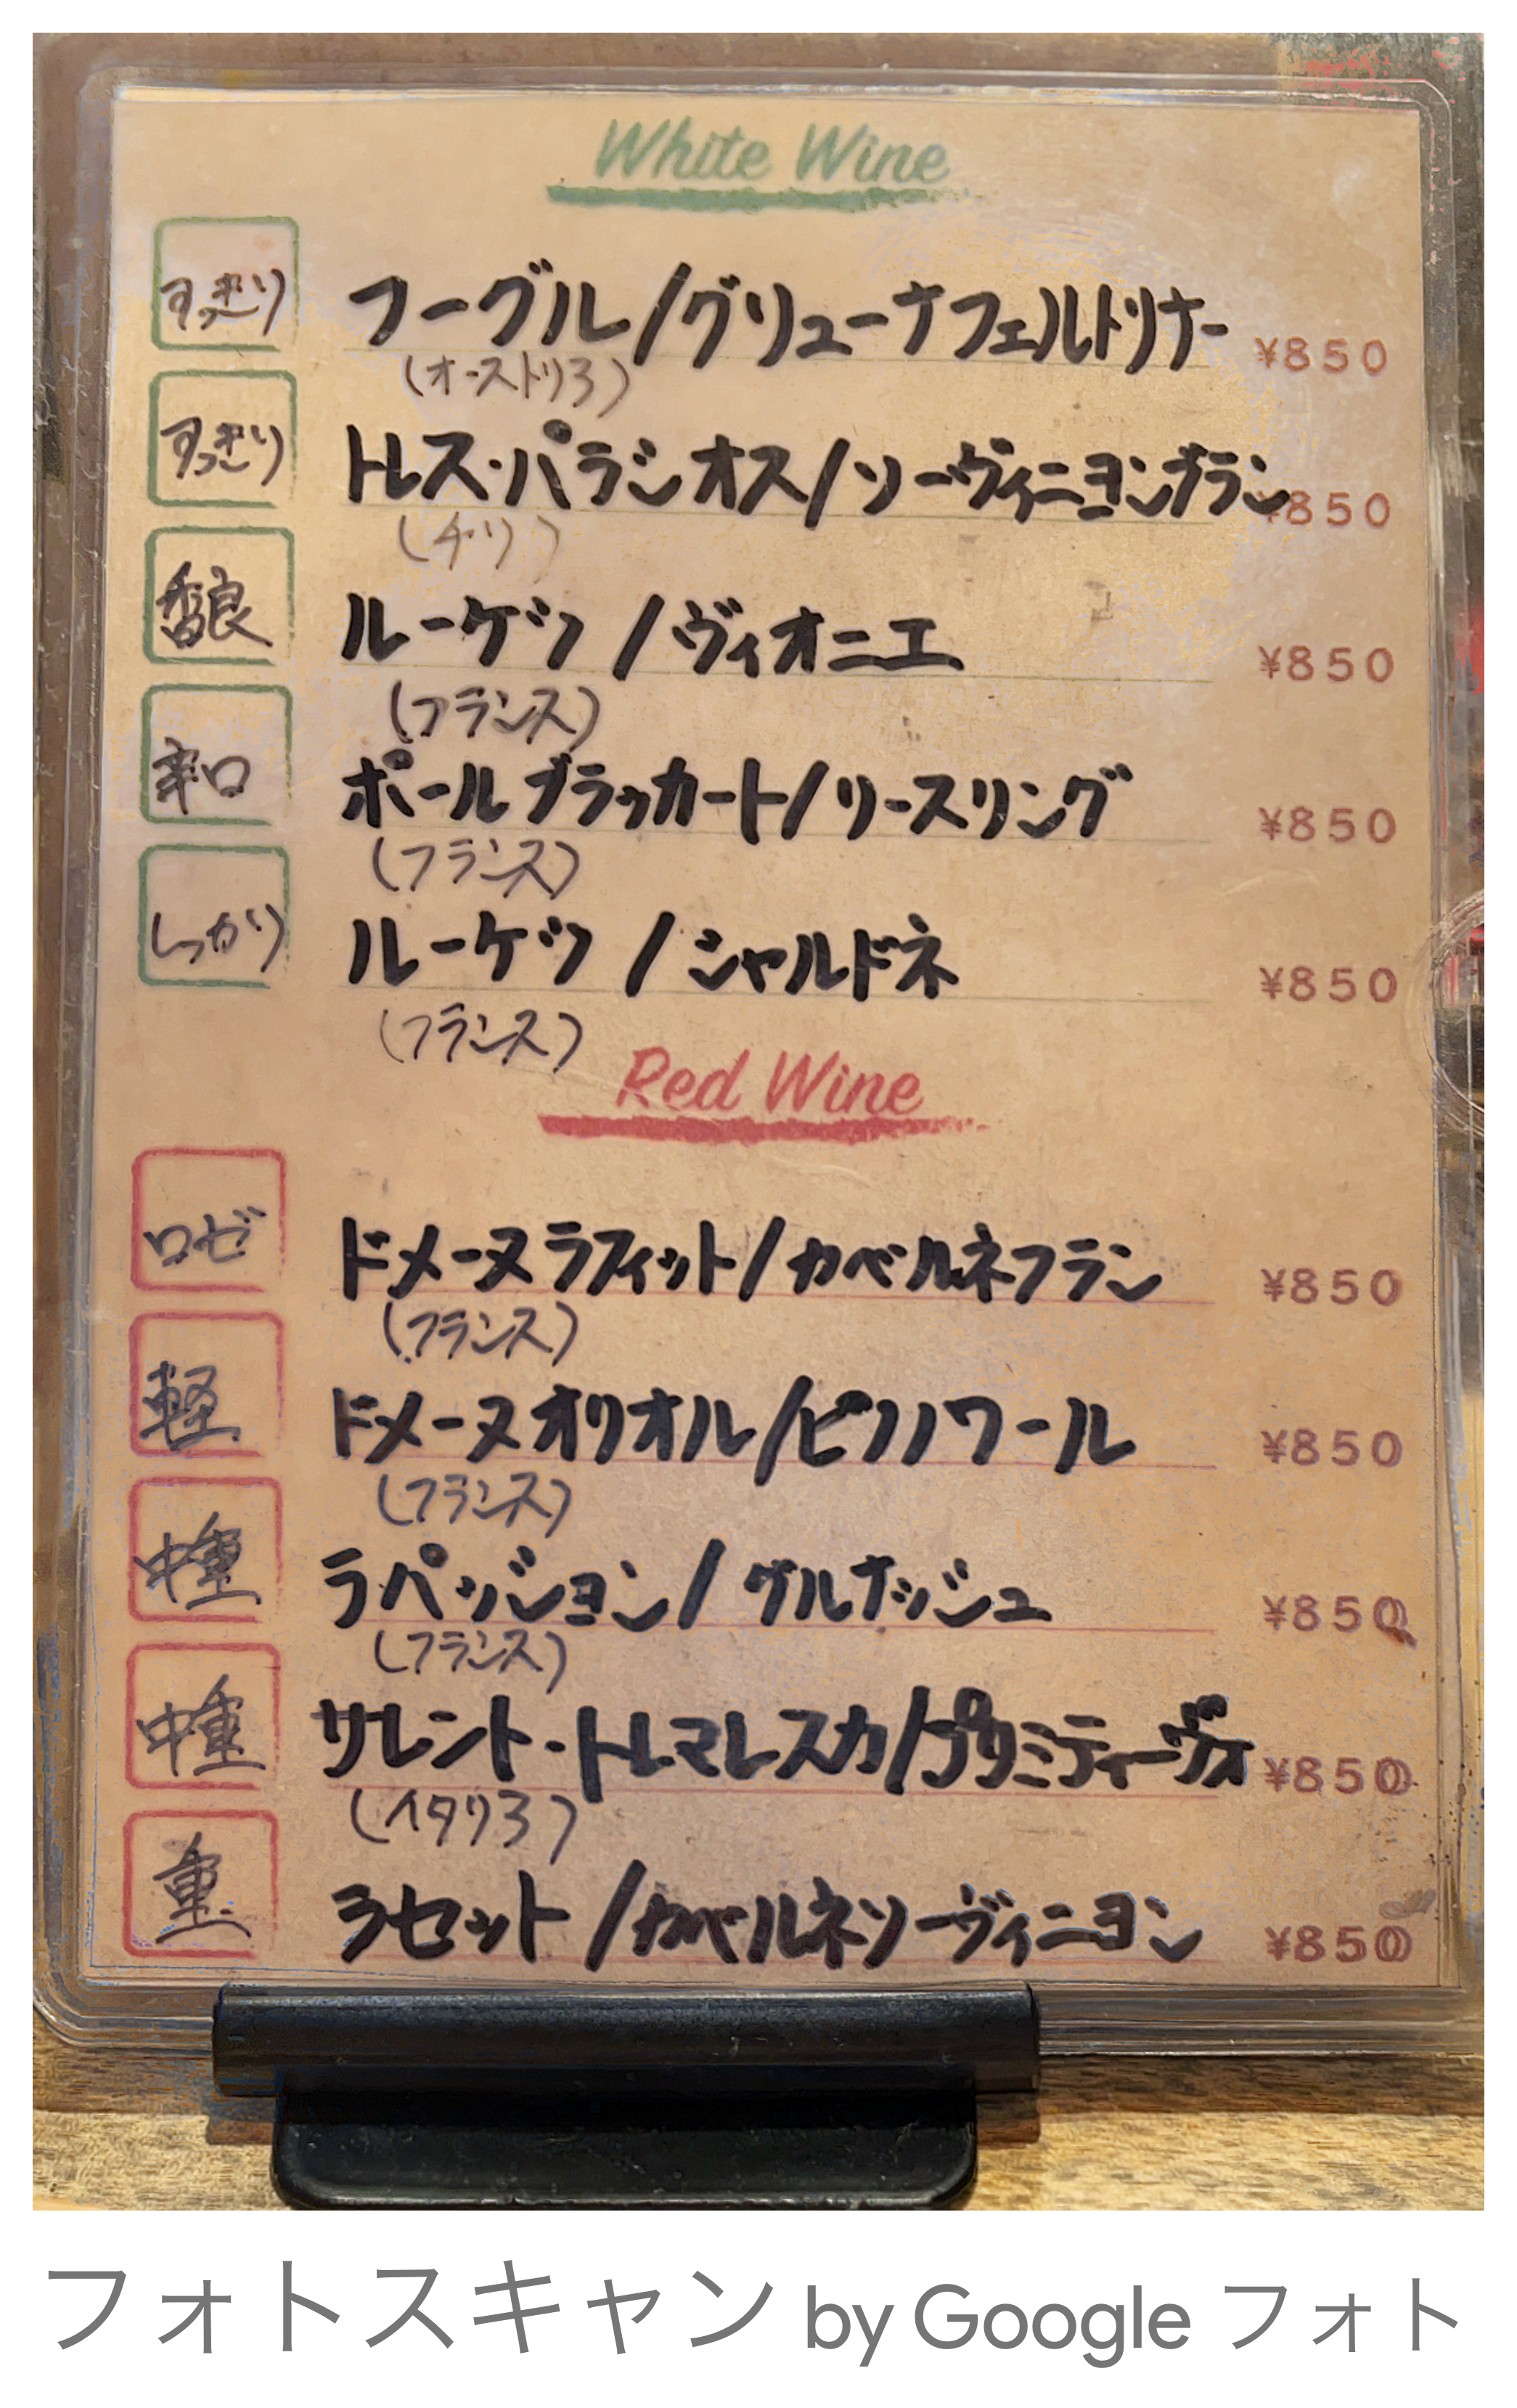 White Wine
すっきり フーグル/グリューナフェルトリナー ¥850
(オーストリア)
すっきり トレス・パラシオス/ソーヴィニヨンブラン ¥850
(チリ)
香良 ルーケツ /ヴィオニエ ¥850
(フランス)
辛口 ポールブラッカート/リースリング ¥850
(フランス)
しっかり ルーケツ /シャルドネ ¥850
(フランス)
Red Wine
ロゼ ドメーヌラフィット/カベルネフラン ¥850
(フランス)
軽 ドメーヌオリオル/ピノノワール ¥850
(フランス)
中重 ラパッション/グルナッシュ ¥850
(フランス)
中重 サレント・トルマレスカ/プリミティーヴォ ¥850
(イタリア)
重 ラセット /カベルネソーヴィニヨン ¥850
フォトスキャン by Google フォト